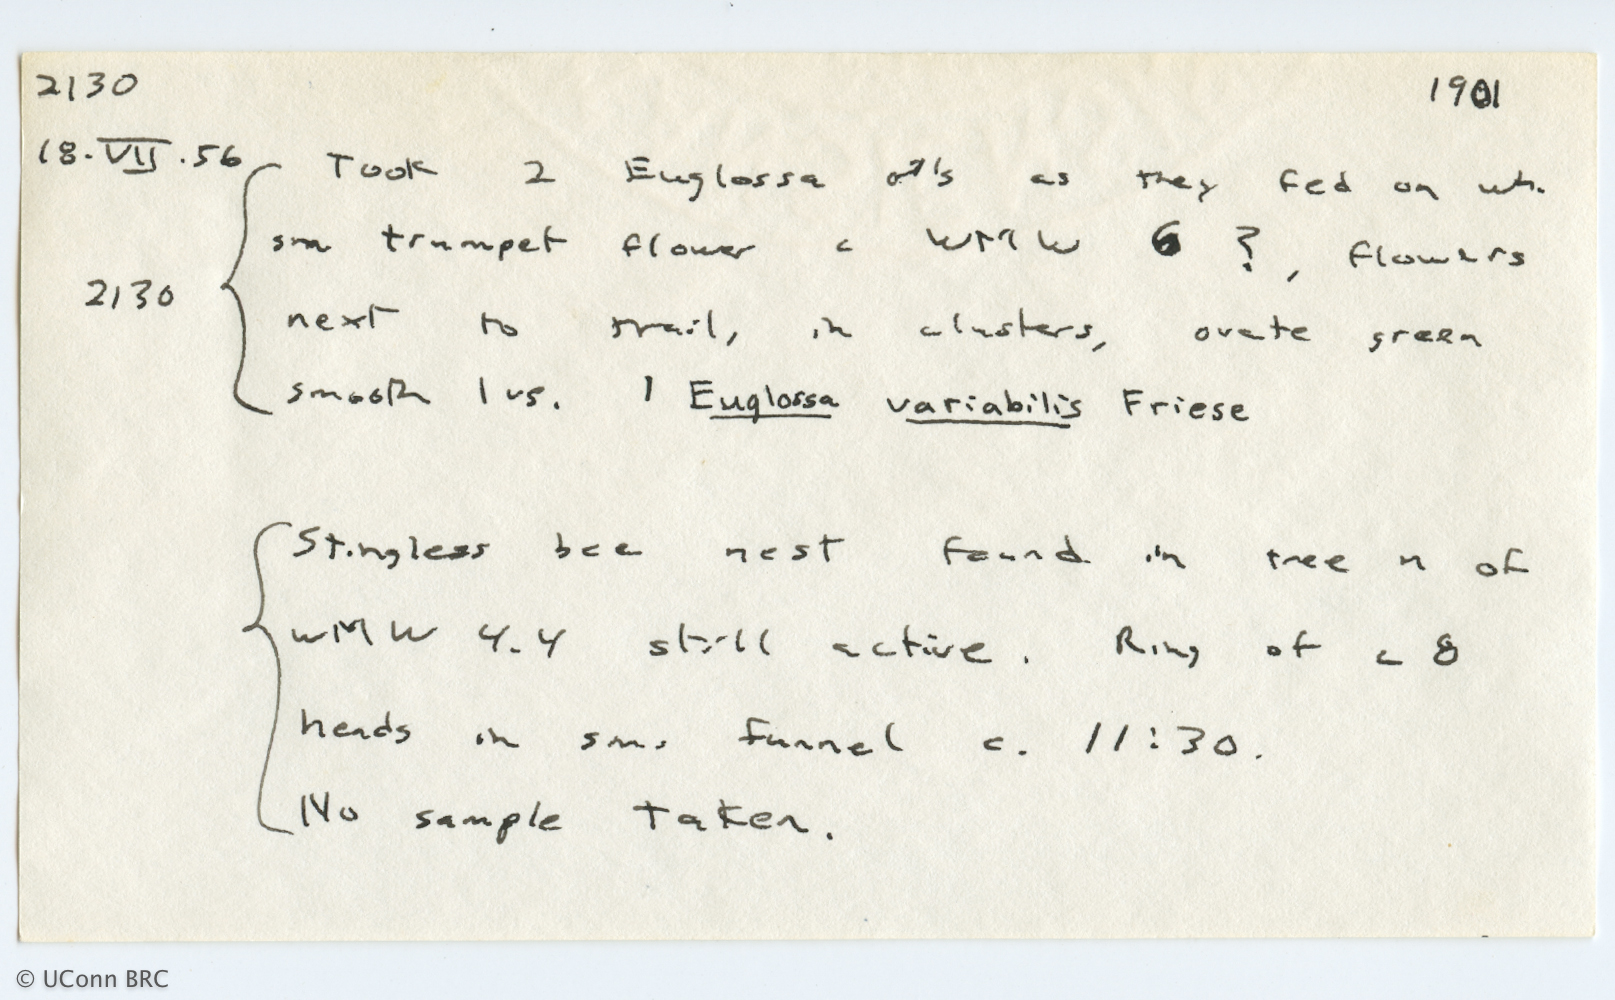 2130 1901
18.VII.56 Took 2 Euglossa ♂'s as they fed on wh.
sm trumpet flower c WMW 6 ?, flowers
2130 next to trail, in clusters, ovate green
smooth lvs. 1 Euglossa variabilis Friese
Stingless bee nest found in tree n of
WMW 4.4 still active. Ring of c 8
heads in sm. funnel c. 11:30.
No sample taken.
© UConn BRC